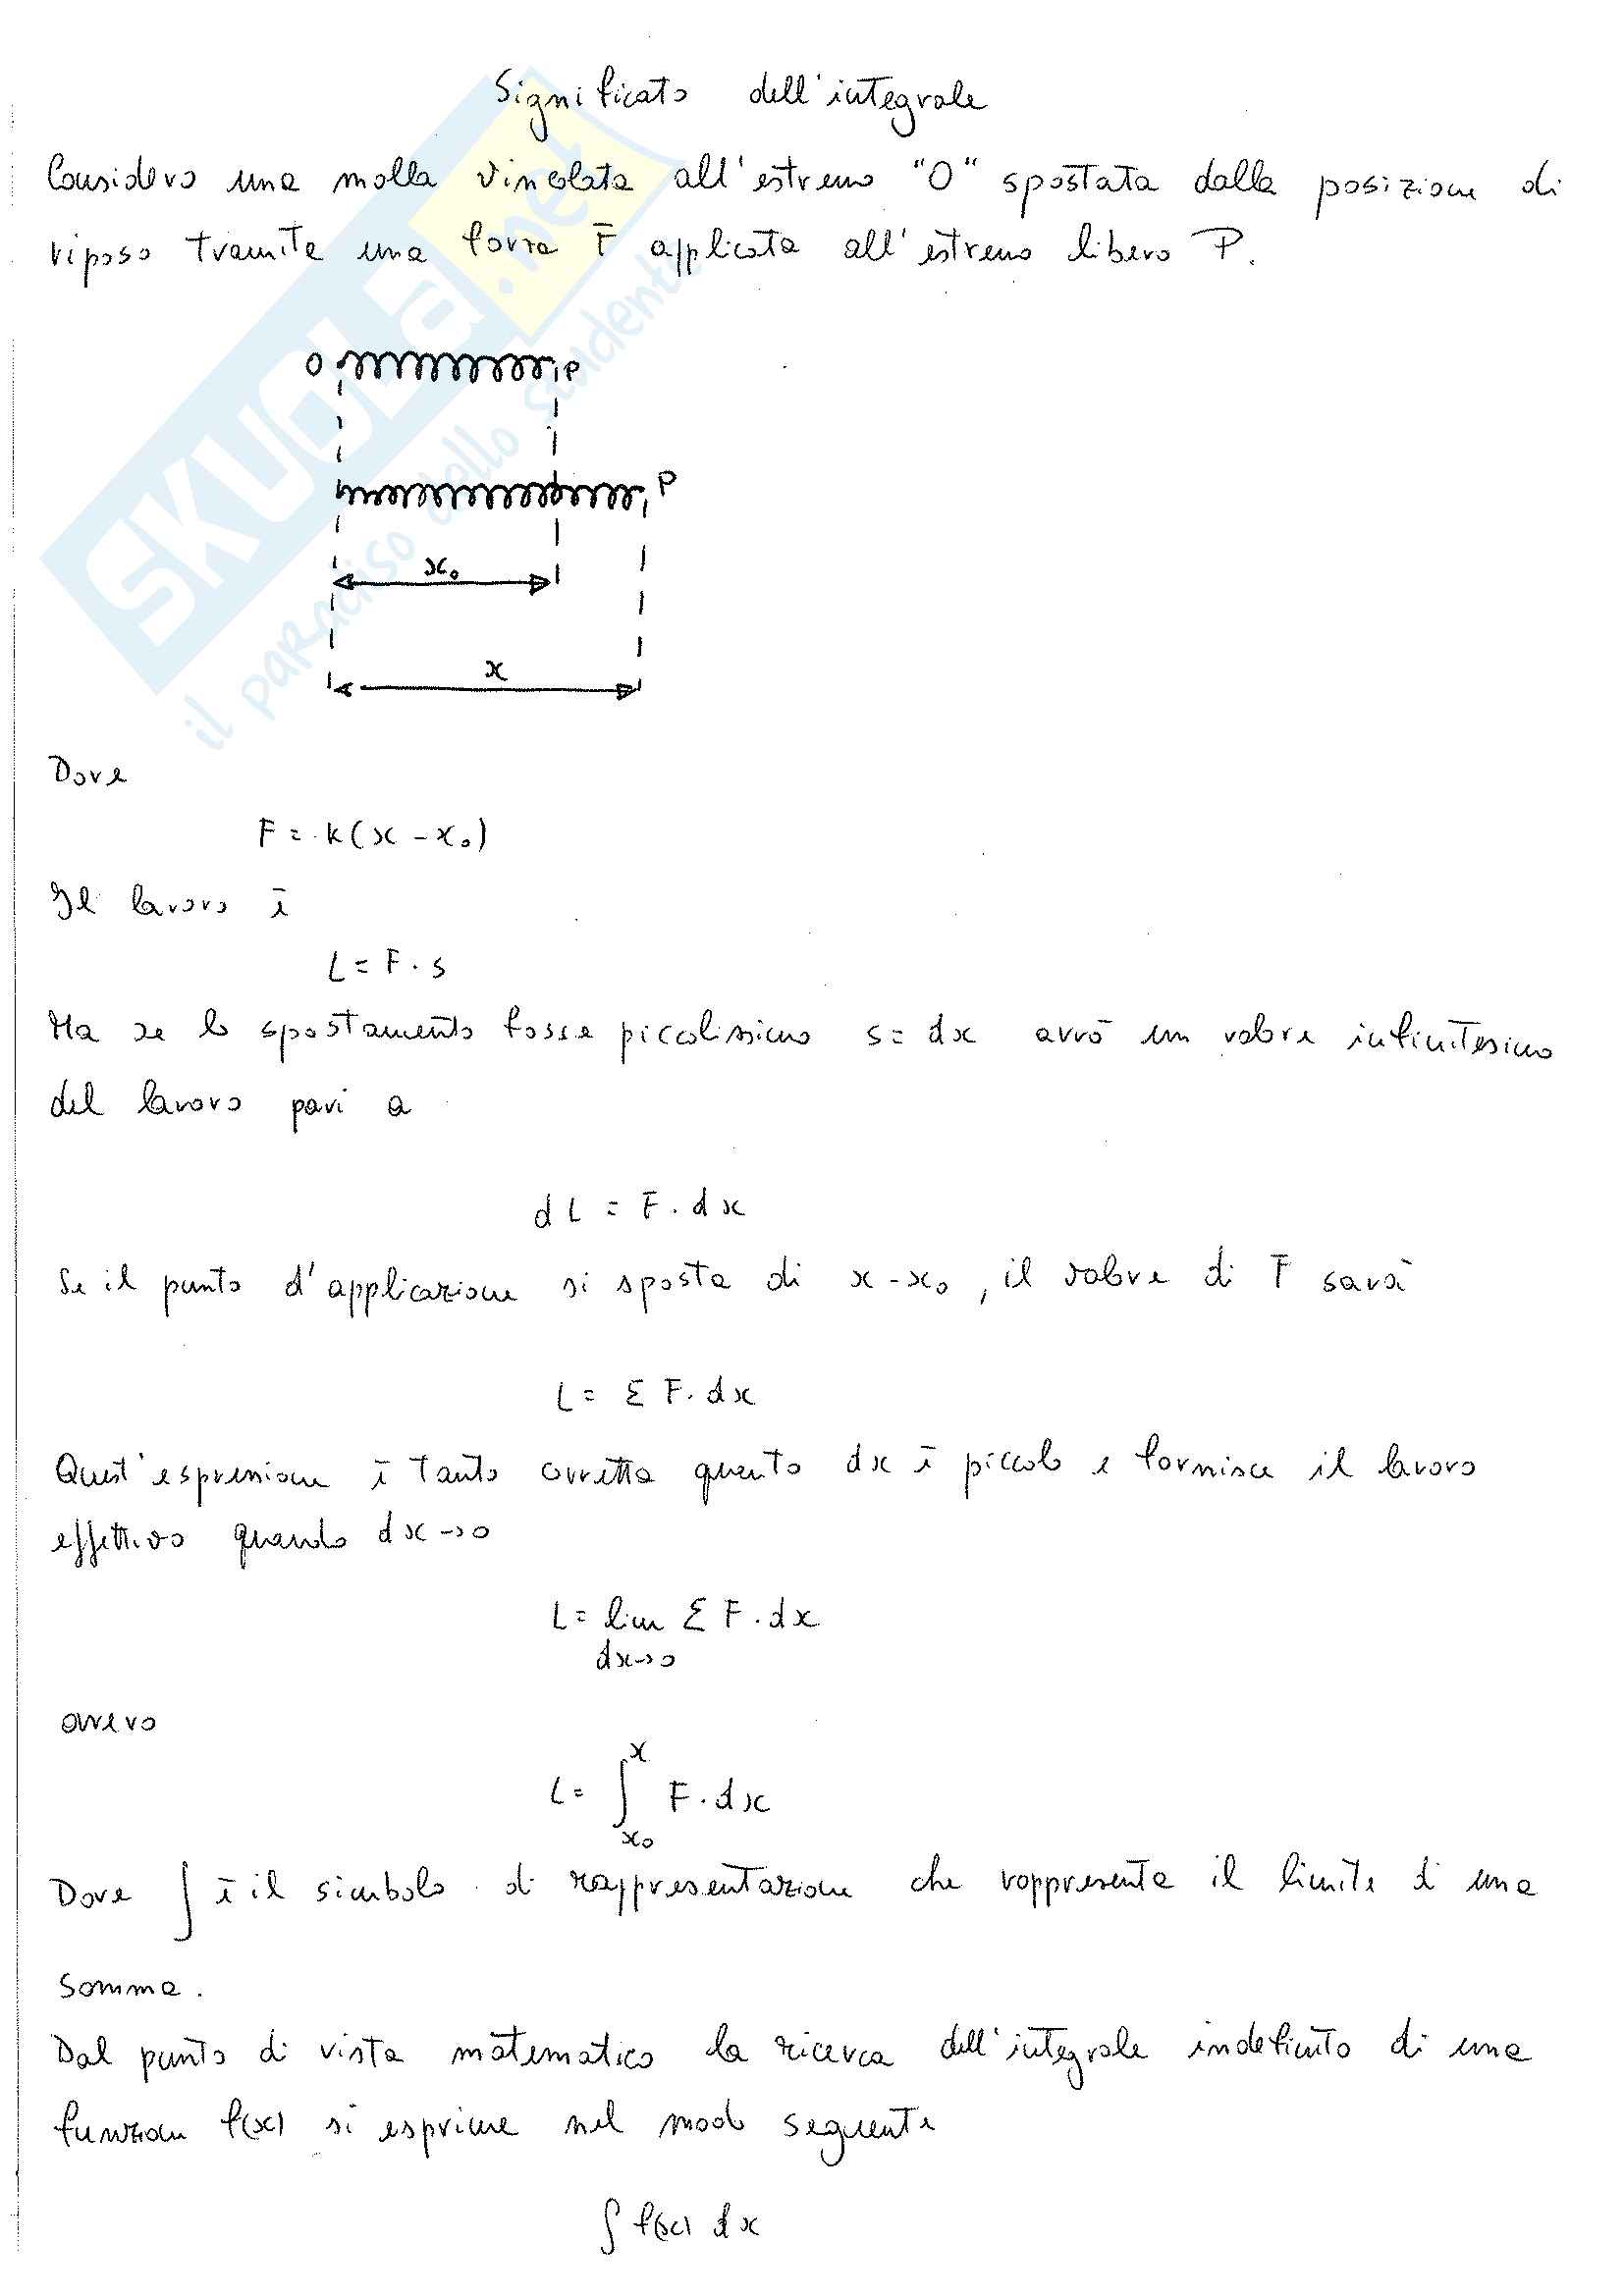 Significato dell'integrale
Considero una molla vincolata all'estremo "O" spostata dalla posizione di
riposo tramite una forza F applicata all'estremo libero P.
O P
P
x₀
x
Dove
F = k(x - x₀)
Il lavoro è
L = F · s
Ma se lo spostamento fosse piccolissimo s = dx avrò un valore infinitesimo
del lavoro pari a
dL = F · dx
Se il punto d'applicazione si sposta di x - x₀, il valore di F sarà
L = Σ F · dx
Quest'espressione è tanto corretta quanto dx è piccolo e fornisce il lavoro
effettivo quando dx → 0
L = lim Σ F · dx
dx → 0
ovvero
x
L = ∫ F · dx
x₀
Dove ∫ è il simbolo di rappresentazione che rappresenta il limite di una
somma.
Dal punto di vista matematico la ricerca dell'integrale indefinito di una
funzione f(x) si esprime nel modo seguente
∫ f(x) dx
SKUOLA.net
il paradiso dello studente